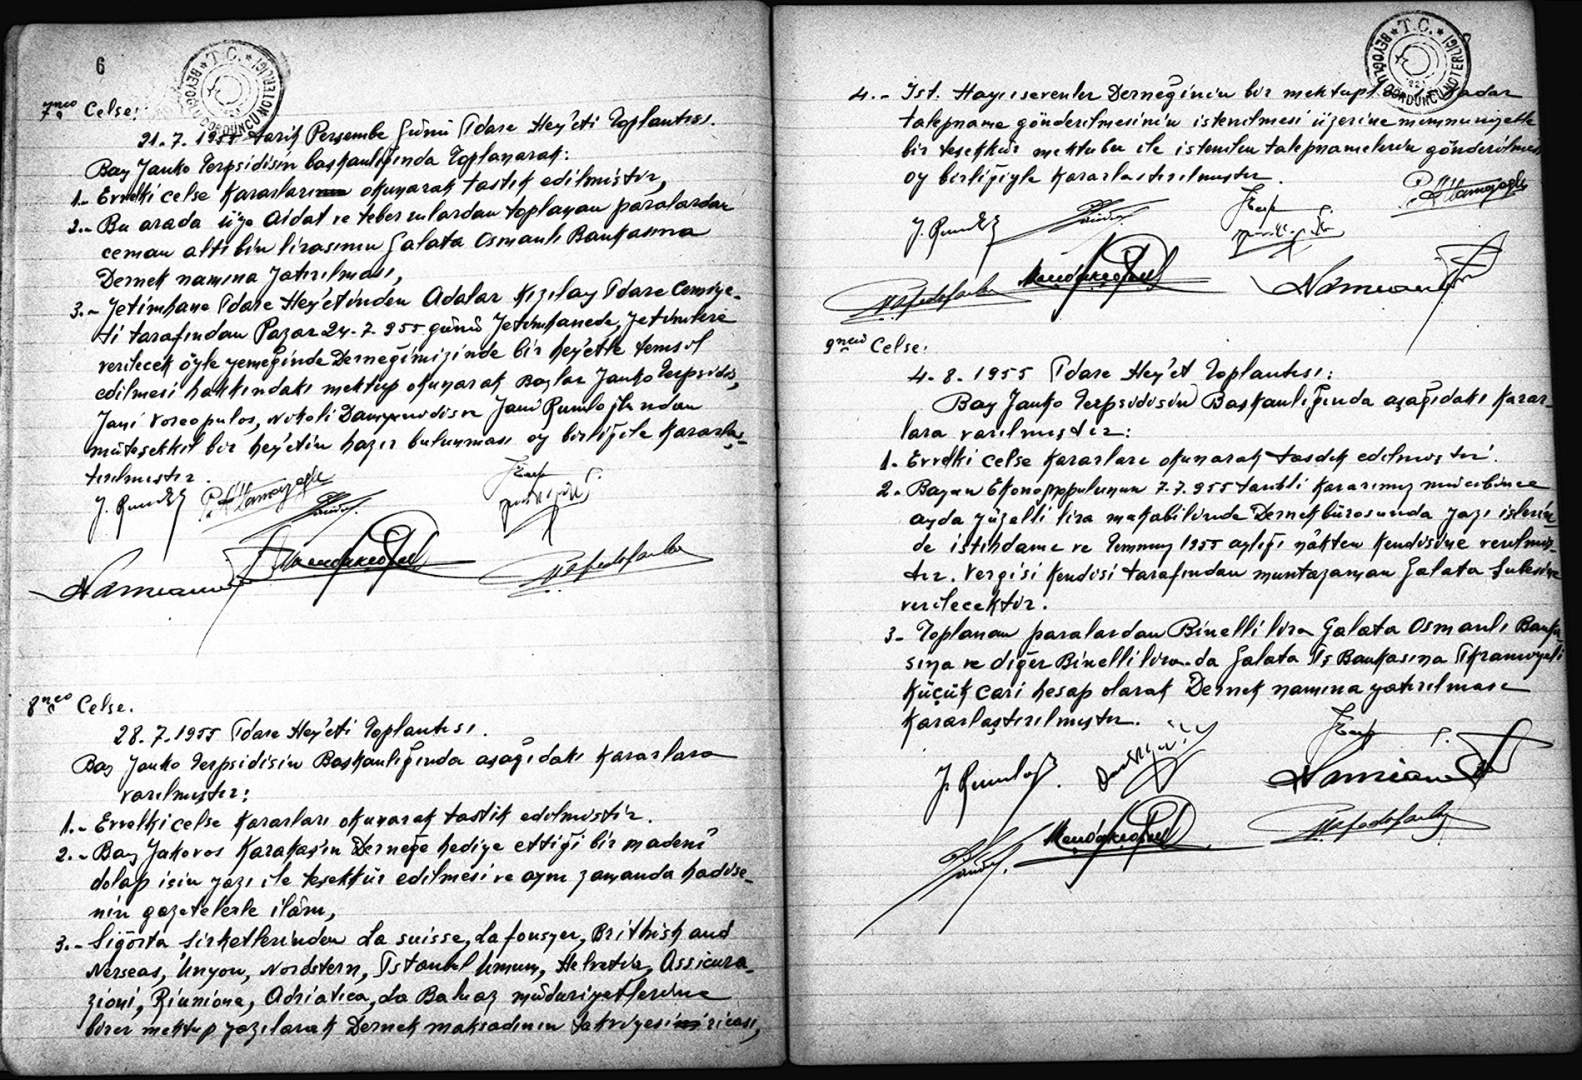 6
T.C.
BEYOĞLU DÖRDÜNCÜ NOTERLİĞİ
7 nci Celse:
21.7.1955 tarih Perşembe Günü İdare Hey'eti Toplantısı.
Bay Yanko Terpsidisin başkanlığında Toplanarak:
1.- Evvelki celse Kararları okunarak tastik edilmiştir,
2.- Bu arada üye aidat ve teberrulardan toplanan paralardan
ceman altı bin lirasının Galata Osmanlı Bankasına
Dernek namına yatırılması,
3.- Yetimhane İdare Hey'etinden Adalar Kızılay İdare Cemiye-
ti tarafından Pazar 24.7.955 günü Yetimhanede, Yetimlere
verilecek öyle yemeğinde Derneğimizinde bir hey'etle temsil
edilmesi hakkındaki mektup okunarak Baylar Yanko Terpsidis,
Yani
müteşekkil bir hey'etin hazır bulunması oy birliğile Kararlaş-
tırılmıştır.
8 nci Celse.
28.7.1955 İdare Hey'eti Toplantısı.
Bay Yanko Terpsidisin Başkanlığında aşağıdaki Kararlara
varılmıştır:
1.- Evvelki celse Kararları okunarak tastik edilmiştir.
2.- Bay Yakovos Karakaş'ın Derneğe hediye ettiği bir madenî
dolap için yazı ile teşekkür edilmesi ve aynı zamanda hadise-
nin gazetelerle ilânı,
3.- Sigorta Şirketlerinden La suisse, La fonsyer, Brithish and
Ünyon, Nordstern, İstanbul Umum, Helvetia, Assicura-
zioni, Riunione, Adriatica, La Baluaz müdüriyetlerine
birer mektup yazılarak Dernek maksadının takviyesi ricası,
T.C.
BEYOĞLU DÖRDÜNCÜ NOTERLİĞİ
4.- İst. Hayırsevenler Derneğinin bir mektupla kadar
talepname gönderilmesinin istenilmesi üzerine memnuniyetle
bir teşekkür mektubu ile istenilen talepnamelerin gönderilmesi
oy birliğiyle Kararlaştırılmıştır.
9 ncu Celse:
4.8.1955 İdare Hey'et Toplantısı:
Bay Yanko Terpsidisin Başkanlığında aşağıdaki Karar-
lara varılmıştır:
1- Evvelki celse Kararları okunarak tasdik edilmiştir.
2- Bayan 7.7.955 tarihli Kararımız mucibince
ayda yüzelli lira mukabilinde Dernek bürosunda yazı işlerin
de istihdamı ve Temmuz 1955 aylığı nakten kendisine verilmiş-
tir. Vergisi Kendisi tarafından muntazaman Galata Şubesine
verilecektir.
3- Toplanan paralardan Binelli lira Galata Osmanlı Banka
sına ve diğer Binelli lira da Galata İş Bankasına İkramiyeli
Küçük cari hesap olarak Dernek namına yatırılması
Kararlaştırılmıştır.